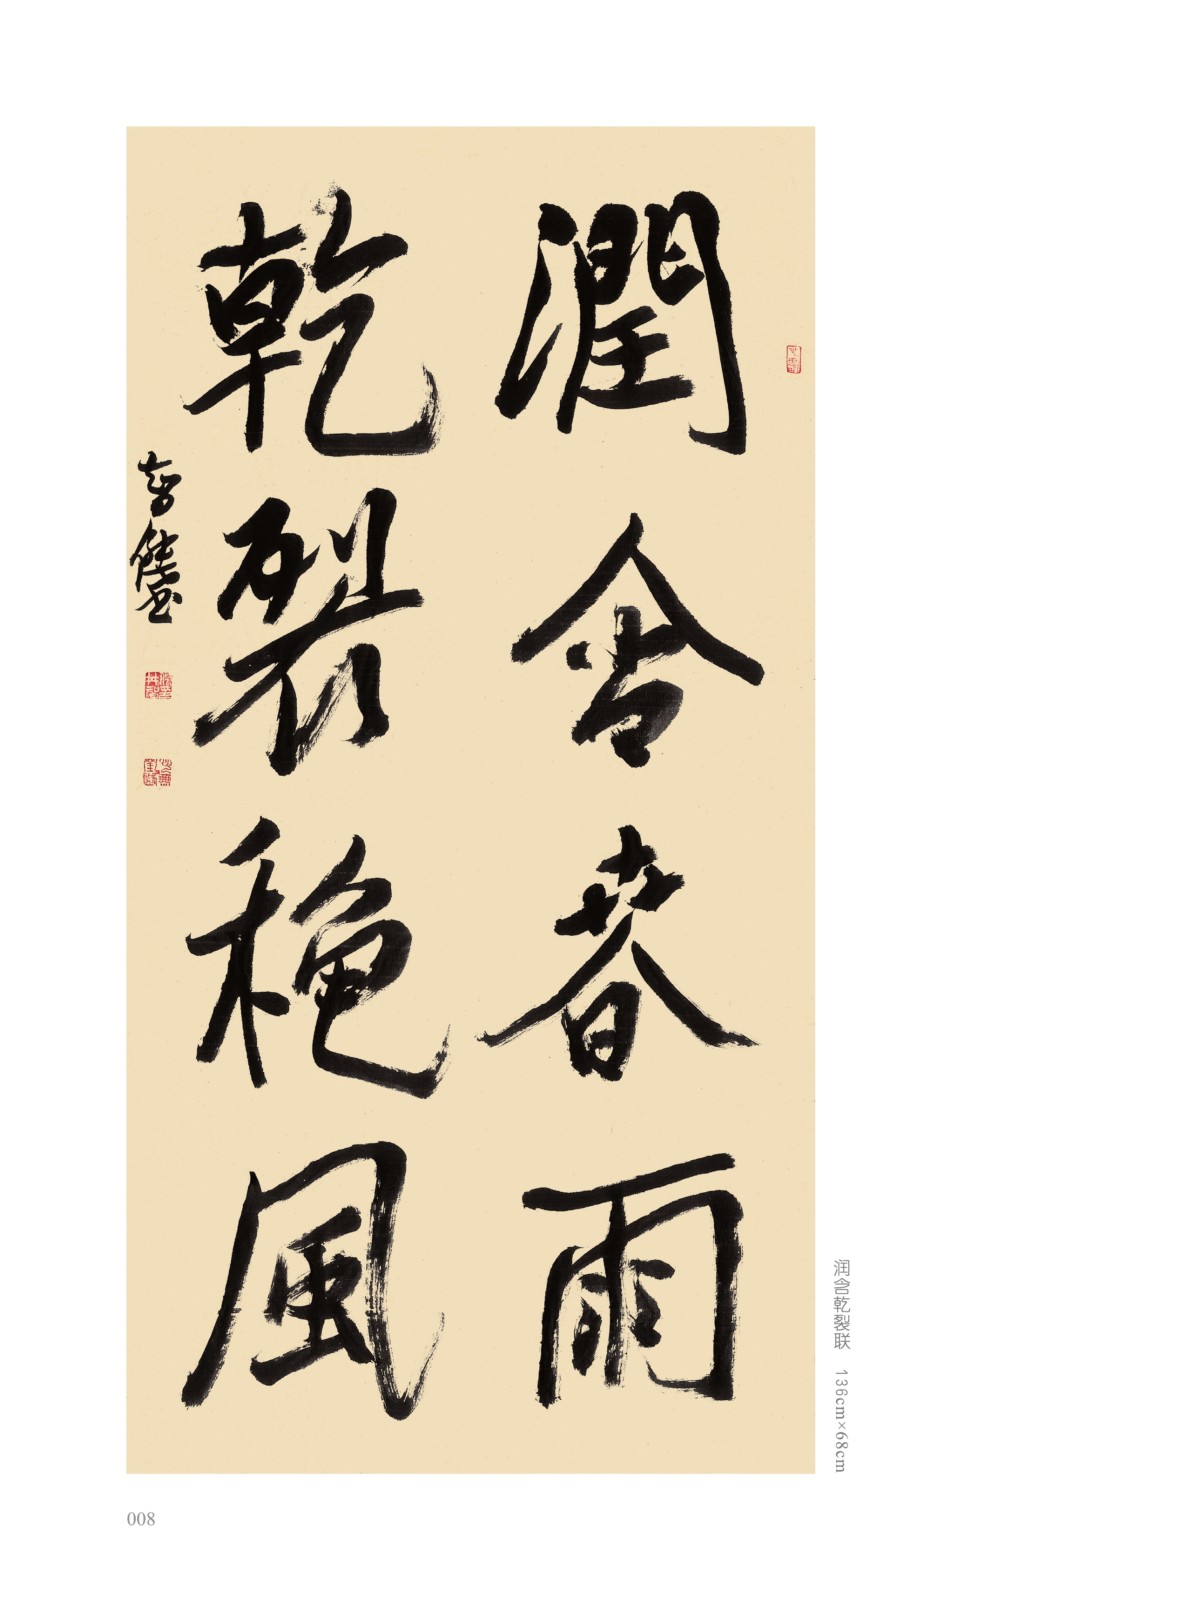 潤含春雨
乾裂穐風
润含乾裂联 136cm×68cm
008